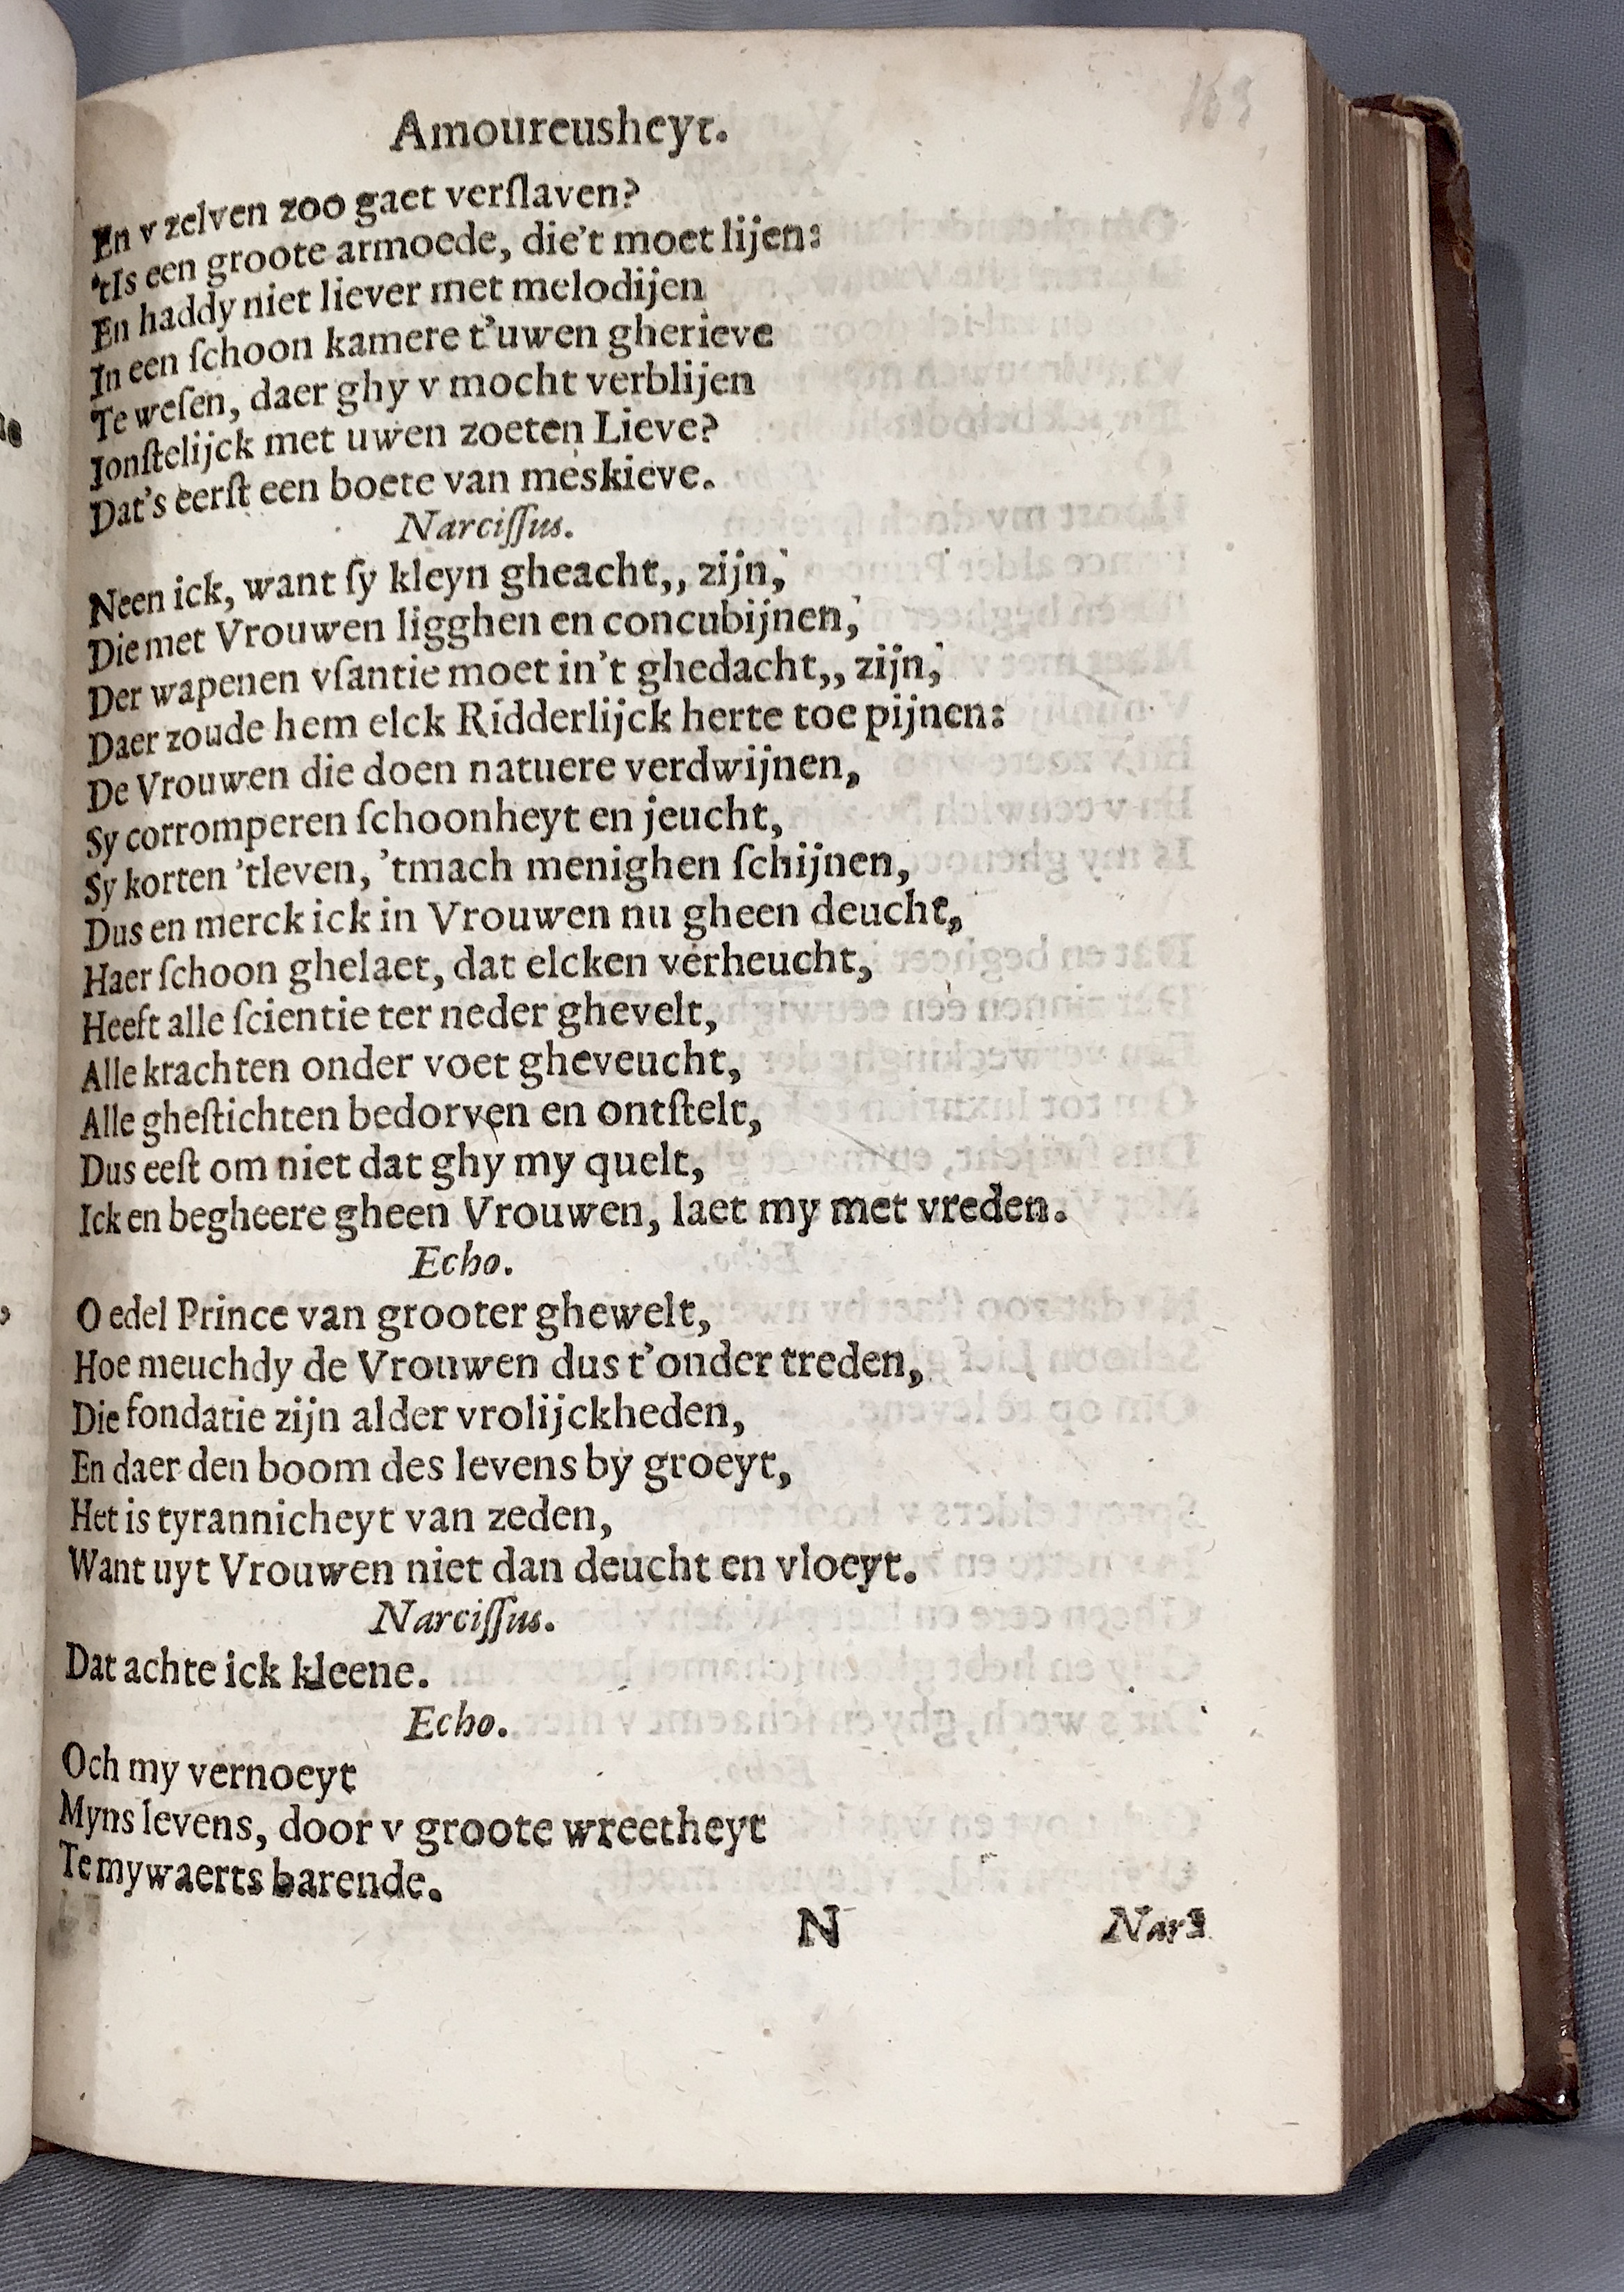 169
Amoureusheyt.
En v zelven zoo gaet verſlaven?
'tIs een groote armoede, die't moet lijen:
En haddy niet liever met melodijen
In een ſchoon kamere t'uwen gherieve
Te weſen, daer ghy v mocht verblijen
Ionſtelijck met uwen zoeten Lieve?
Dat's eerſt een boete van meskieve.
Narciſſus.
Neen ick, want ſy kleyn gheacht,, zijn,
Die met Vrouwen ligghen en concubijnen,
Der wapenen vſantie moet in't ghedacht,, zijn,
Daer zoude hem elck Ridderlijck herte toe pijnen:
De Vrouwen die doen natuere verdwijnen,
Sy corromperen ſchoonheyt en jeucht,
Sy korten 'tleven, 'tmach menighen ſchijnen,
Dus en merck ick in Vrouwen nu gheen deucht,
Haer ſchoon ghelaet, dat elcken verheucht,
Heeft alle ſcientie ter neder ghevelt,
Alle krachten onder voet gheveucht,
Alle gheſtichten bedorven en ontſtelt,
Dus eeſt om niet dat ghy my quelt,
Ick en begheere gheen Vrouwen, laet my met vreden.
Echo.
O edel Prince van grooter ghewelt,
Hoe meuchdy de Vrouwen dus t'onder treden,
Die fondatie zijn alder vrolijckheden,
En daer den boom des levens by groeyt,
Het is tyrannicheyt van zeden,
Want uyt Vrouwen niet dan deucht en vloeyt.
Narciſſus.
Dat achte ick kleene.
Echo.
Och my vernoeyt
Myns levens, door v groote wreetheyt
Te mywaerts barende.
N Nar-